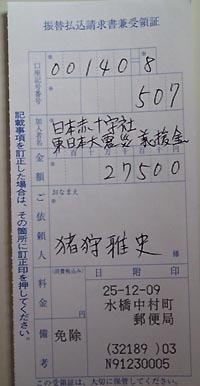 振替払込請求書兼受領証
口座記号番号
00140-8
507
加入者名
日本赤十字社
東日本大震災 義援金
金額
27500
ご依頼人
おなまえ
猪狩雅史 様
料金
(消費税込み)
備考
免除
日附印
25-12-09
水橋中村町
郵便局
(32189)03
N91230005
記載事項を訂正した場合は、その箇所に訂正印を押してください。
この受領証は、大切に保管してください。